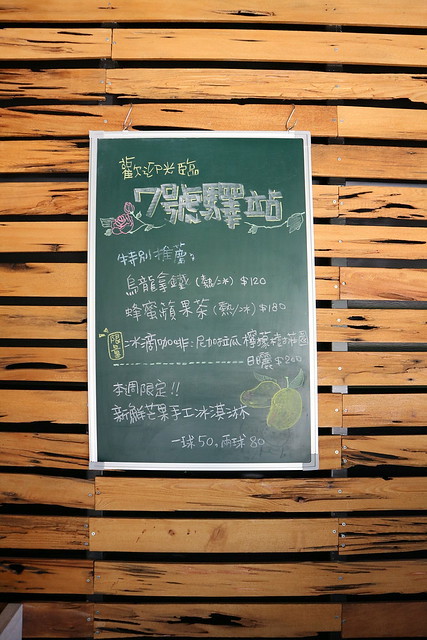 歡迎光臨
7號驛站
特別推薦:
烏龍拿鐵 (熱/冰) $120
蜂蜜蘋果茶 (熱/冰) $180
限量 冰滴咖啡:尼加拉瓜 檸檬樹莊園
日曬 $260
本週限定!!
新鮮芒果手工冰淇淋
一球50,兩球80